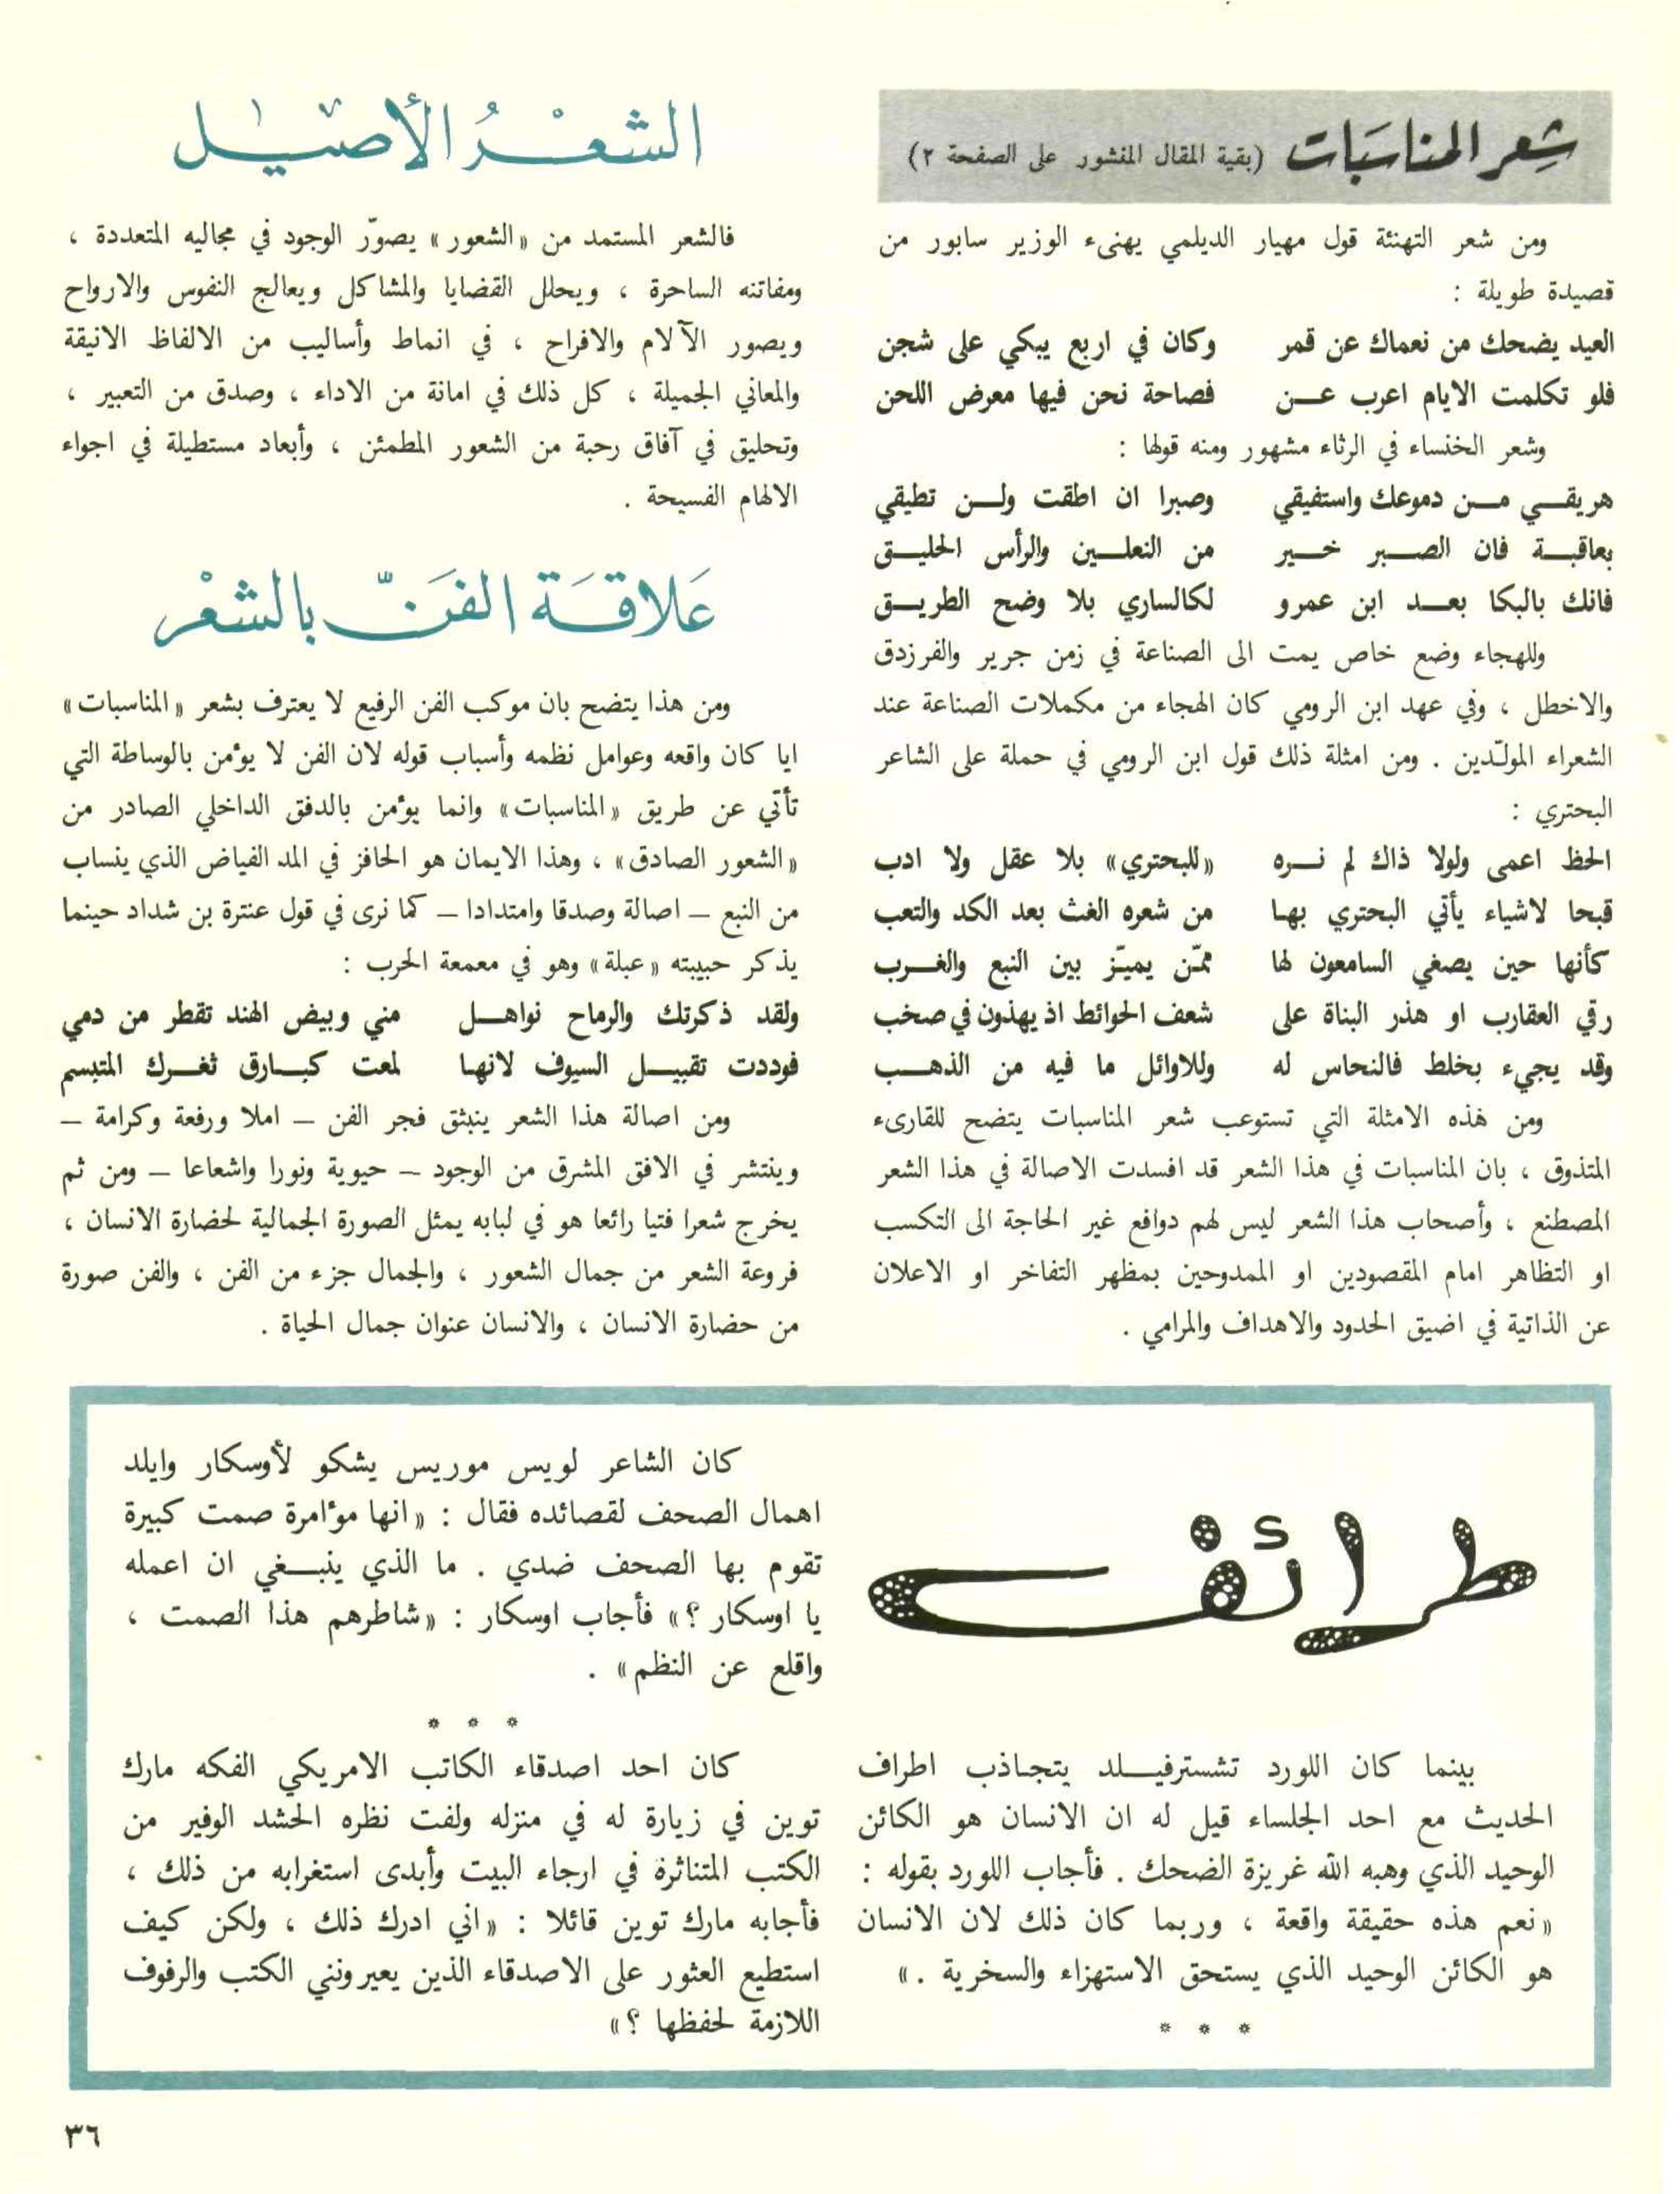 شعر المناسبات (بقية المقال المنشور على الصفحة ٢)
ومن شعر التهنئة قول مهيار الديلمي يهنىء الوزير سابور من
قصيدة طويلة :
العيد يضحك من نعماك عن قمر وكان في اربع يبكي على شجن
فلو تكلمت الايام اعرب عن فصاحة نحن فيها معرض اللحن
وشعر الخنساء في الرثاء مشهور ومنه قولها :
هريقي من دموعك واستفيقي وصبرا ان اطقت ولن تطيقي
بعاقبة فان الصبر خير من النعلين والرأس الحليق
فانك بالبكا بعد ابن عمرو لكالساري بلا وضح الطريق
وللهجاء وضع خاص يمت الى الصناعة في زمن جرير والفرزدق
والاخطل ، وفي عهد ابن الرومي كان الهجاء من مكملات الصناعة عند
الشعراء المولّدين . ومن امثلة ذلك قول ابن الرومي في حملة على الشاعر
البحتري :
الحظ اعمى ولولا ذاك لم نره «للبحتري» بلا عقل ولا ادب
قبحا لاشياء يأتي البحتري بها من شعره الغث بعد الكد والتعب
كأنها حين يصغي السامعون لها ممّن يميّز بين النبع والغرب
رقي العقارب او هذر البناة على شعف الحوائط اذ يهذون في صخب
وقد يجيء بخلط فالنحاس له وللاوائل ما فيه من الذهب
ومن هذه الامثلة التي تستوعب شعر المناسبات يتضح للقارىء
المتذوق ، بان المناسبات في هذا الشعر قد افسدت الاصالة في هذا الشعر
المصطنع ، وأصحاب هذا الشعر ليس لهم دوافع غير الحاجة الى التكسب
او التظاهر امام المقصودين او الممدوحين بمظهر التفاخر او الاعلان
عن الذاتية في اضيق الحدود والاهداف والمرامي .
الشعْرُ الأصيْل
فالشعر المستمد من «الشعور» يصوّر الوجود في مجاليه المتعددة ،
ومفاتنه الساحرة ، ويحلل القضايا والمشاكل ويعالج النفوس والارواح
ويصور الآلام والافراح ، في انماط وأساليب من الالفاظ الانيقة
والمعاني الجميلة ، كل ذلك في امانة من الاداء ، وصدق من التعبير ،
وتحليق في آفاق رحبة من الشعور المطمئن ، وأبعاد مستطيلة في اجواء
الالهام الفسيحة .
عَلاقَة الفَنّ بالشعْر
ومن هذا يتضح بان موكب الفن الرفيع لا يعترف بشعر «المناسبات»
ايا كان واقعه وعوامل نظمه وأسباب قوله لان الفن لا يؤمن بالوساطة التي
تأتي عن طريق «المناسبات» وانما يؤمن بالدفق الداخلي الصادر من
«الشعور الصادق» ، وهذا الايمان هو الحافز في المد الفياض الذي ينساب
من النبع – اصالة وصدقا وامتدادا – كما نرى في قول عنترة بن شداد حينما
يذكر حبيبته «عبلة» وهو في معمعة الحرب :
ولقد ذكرتك والرماح نواهل مني وبيض الهند تقطر من دمي
فوددت تقبيل السيوف لانها لمعت كبارق ثغرك المتبسم
ومن اصالة هذا الشعر ينبثق فجر الفن – املا ورفعة وكرامة –
وينتشر في الافق المشرق من الوجود – حيوية ونورا واشعاعا – ومن ثم
يخرج شعرا فتيا رائعا هو في لبابه يمثل الصورة الجمالية لحضارة الانسان ،
فروعة الشعر من جمال الشعور ، والجمال جزء من الفن ، والفن صورة
من حضارة الانسان ، والانسان عنوان جمال الحياة .
طرائف
بينما كان اللورد تشسترفيلد يتجاذب اطراف
الحديث مع احد الجلساء قيل له ان الانسان هو الكائن
الوحيد الذي وهبه الله غريزة الضحك . فأجاب اللورد بقوله :
«نعم هذه حقيقة واقعة ، وربما كان ذلك لان الانسان
هو الكائن الوحيد الذي يستحق الاستهزاء والسخرية . »
* * *
كان الشاعر لويس موريس يشكو لأوسكار وايلد
اهمال الصحف لقصائده فقال : «انها مؤامرة صمت كبيرة
تقوم بها الصحف ضدي . ما الذي ينبغي ان اعمله
يا اوسكار ؟» فأجاب اوسكار : «شاطرهم هذا الصمت ،
واقلع عن النظم» .
* * *
كان احد اصدقاء الكاتب الامريكي الفكه مارك
توين في زيارة له في منزله ولفت نظره الحشد الوفير من
الكتب المتناثرة في ارجاء البيت وأبدى استغرابه من ذلك ،
فأجابه مارك توين قائلا : «اني ادرك ذلك ، ولكن كيف
استطيع العثور على الاصدقاء الذين يعيرونني الكتب والرفوف
اللازمة لحفظها ؟»
٣٦